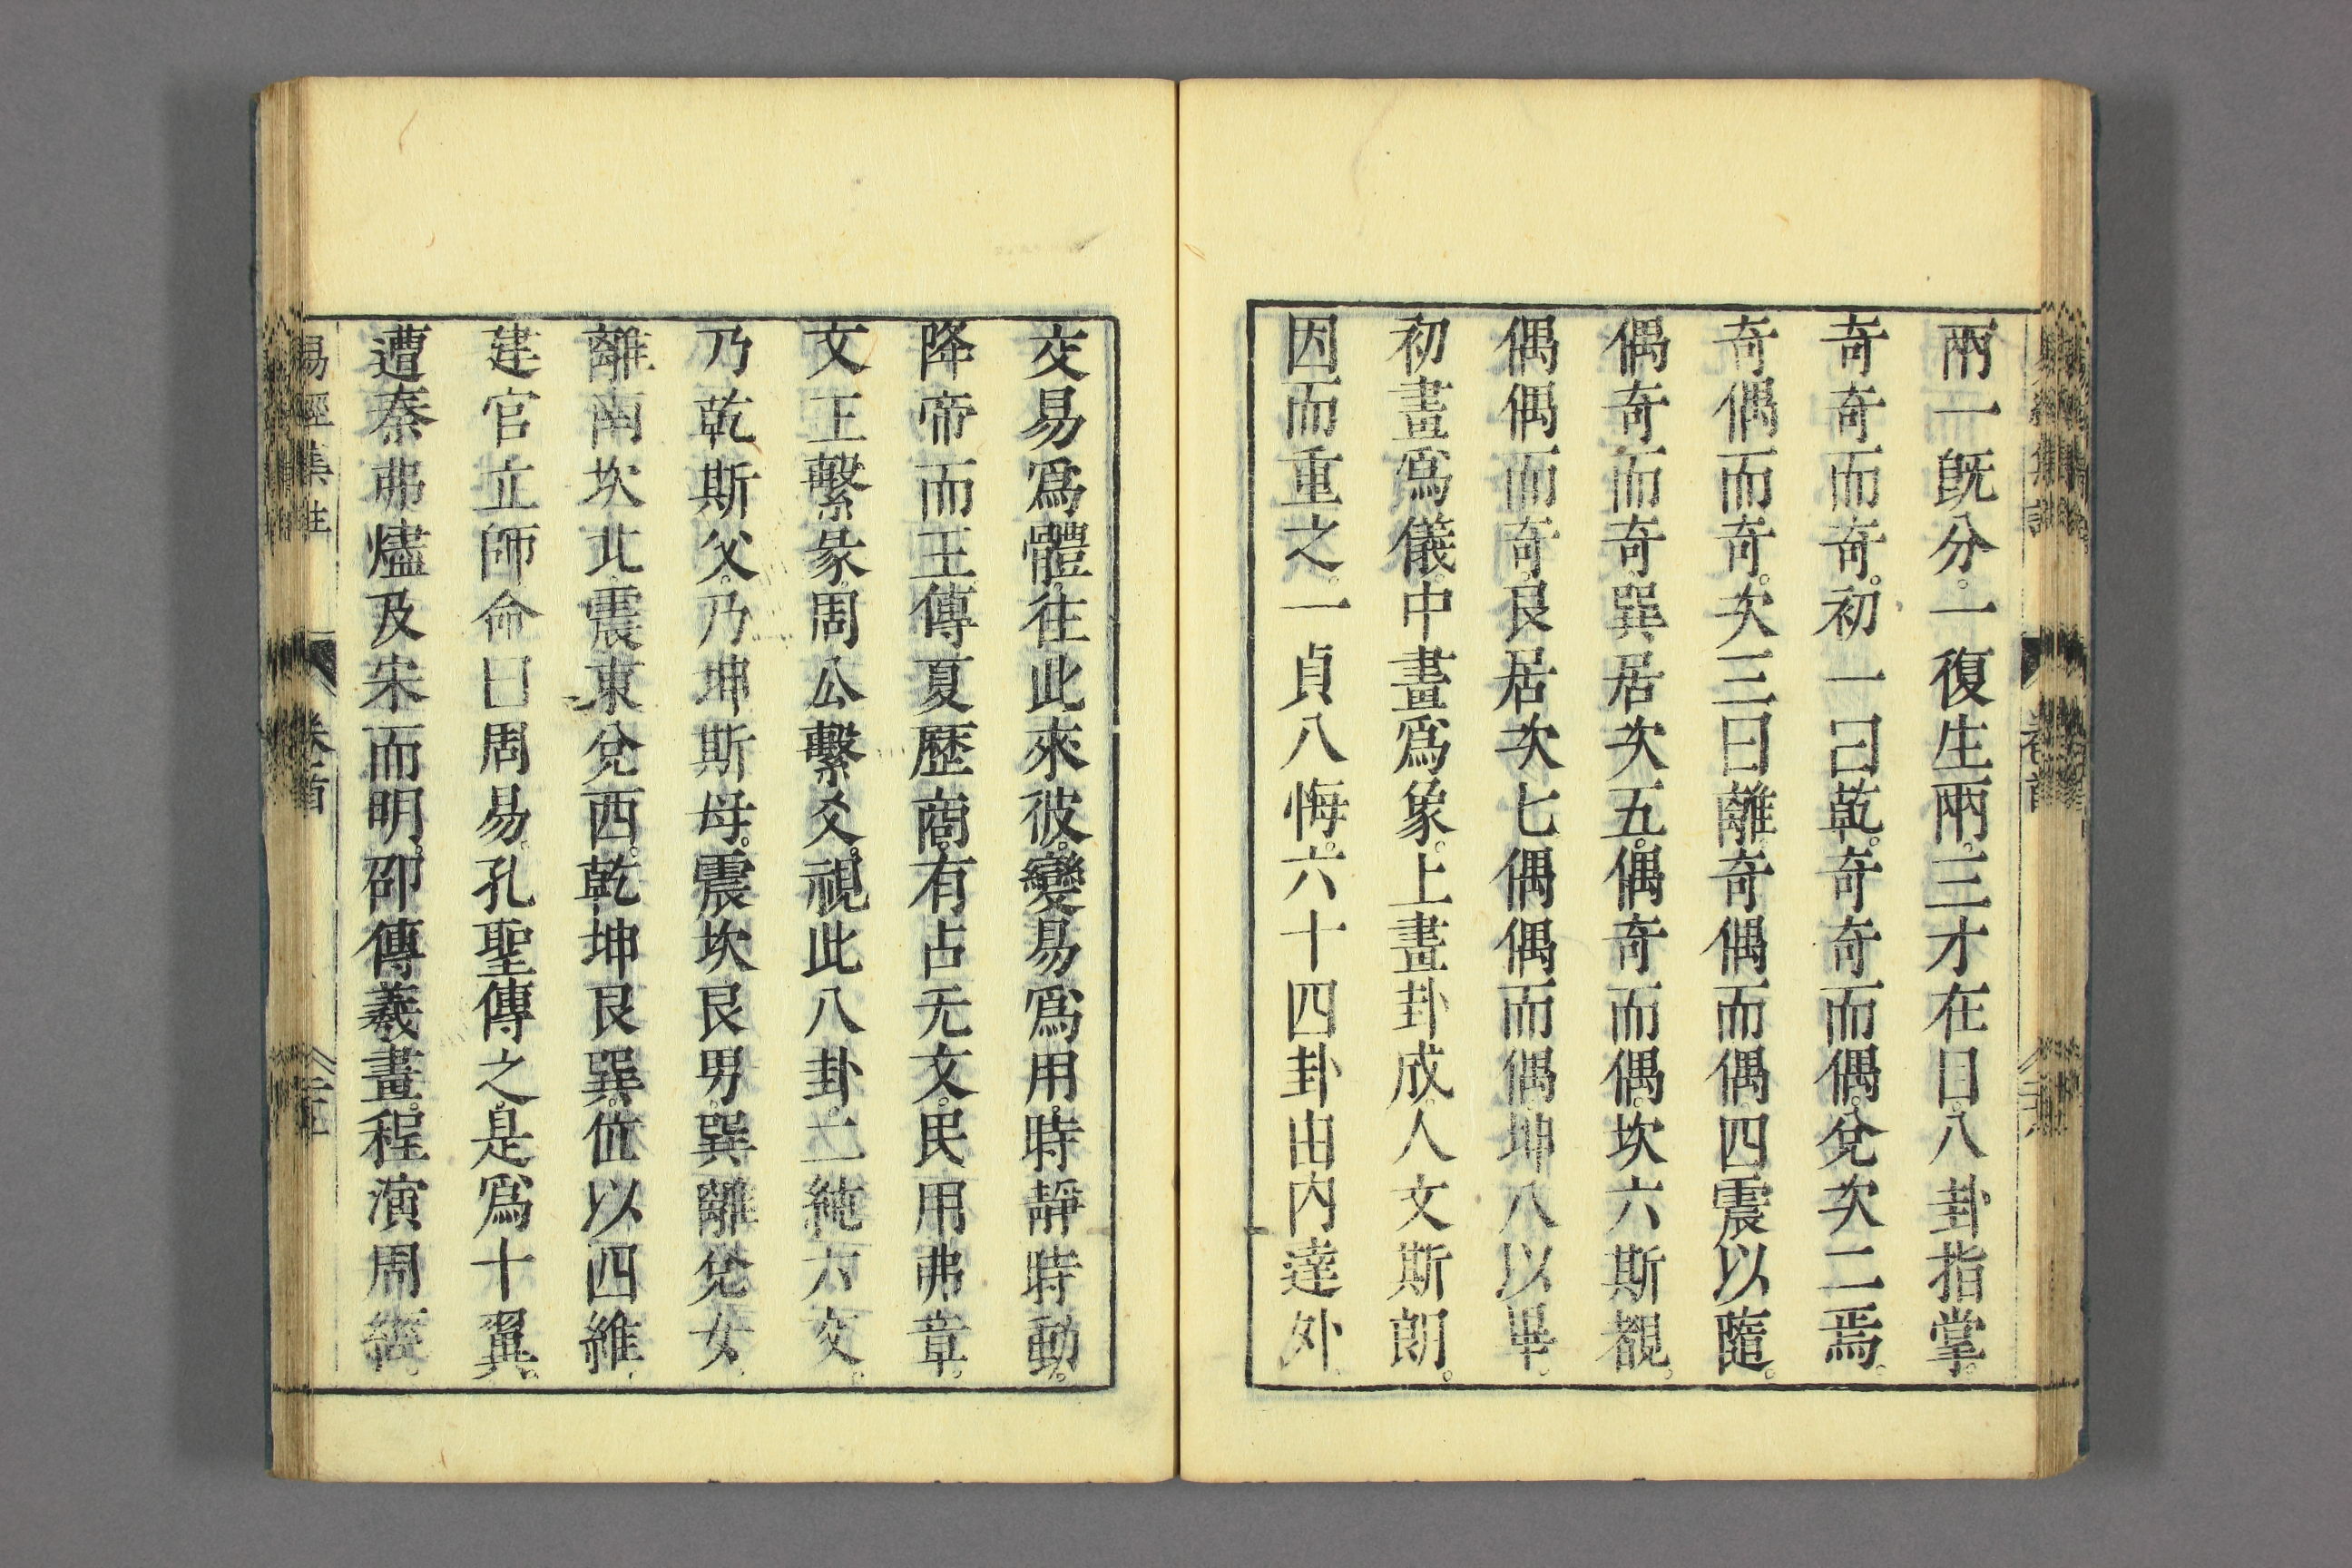 兩一旣分。一復生兩。三才在目。八卦指掌。
奇奇而奇。初一曰乾。奇奇而偶。兌次二焉。
奇偶而奇。次三曰離。奇偶而偶。四震以隨。
偶奇而奇。巽居次五。偶奇而偶。坎六斯覩。
偶偶而奇。艮居次七。偶偶而偶。坤八以畢。
初畫爲儀。中畫爲象。上畫卦成。人文斯朗。
因而重之。一貞八悔。六十四卦。由內達外。
交易爲體。往此來彼。變易爲用。時靜時動。
降帝而王。傳夏歷商。有占无文。民用弗章。
文王繫彖。周公繫爻。視此八卦。二純六交。
乃乾斯父。乃坤斯母。震坎艮男。巽離兌女。
離南坎北。震東兌西。乾坤艮巽。位以四維。
建官立師。命曰周易。孔聖傳之。是爲十翼。
遭秦弗燼。及宋而明。邵傳羲畫。程演周經。
易經集註 卷首